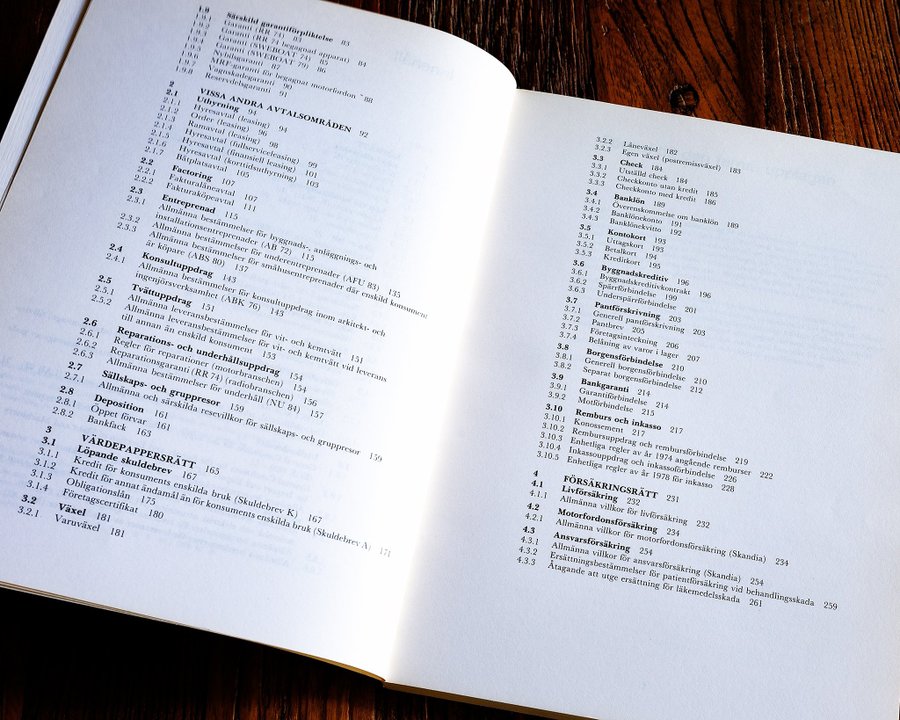 1.9 Särskild garantiförpliktelse 83
1.9.1 Garanti (RR 74) 83
1.9.2 Garanti (RR 74 begagnad apparat) 84
1.9.3 Garanti (SWEBOAT 74) 85
1.9.4 Garanti (SWEBOAT 79) 86
1.9.5 Nybilsgaranti 87
1.9.6 MRF-garanti för begagnat motorfordon 88
1.9.7 Vagnskadegaranti 90
1.9.8 Reservdelsgaranti 91
2 VISSA ANDRA AVTALSOMRÅDEN 92
2.1 Uthyrning 94
2.1.1 Hyresavtal (leasing) 94
2.1.2 Order (leasing) 96
2.1.3 Ramavtal (leasing) 98
2.1.4 Hyresavtal (fullserviceleasing) 99
2.1.5 Hyresavtal (finansiell leasing) 101
2.1.6 Hyresavtal (korttidsuthyrning) 103
2.1.7 Båtplatsavtal 105
2.2 Factoring 107
2.2.1 Fakturalåneavtal 107
2.2.2 Fakturaköpeavtal 111
2.3 Entreprenad 115
2.3.1 Allmänna bestämmelser för byggnads-, anläggnings- och
installationsentreprenader (AB 72) 115
2.3.2 Allmänna bestämmelser för underentreprenader (AFU 83) 135
2.3.3 Allmänna bestämmelser för småhusentreprenader där enskild konsument
är köpare (ABS 80) 137
2.4 Konsultuppdrag 143
2.4.1 Allmänna bestämmelser för konsultuppdrag inom arkitekt- och
ingenjörsverksamhet (ABK 76) 143
2.5 Tvättuppdrag 151
2.5.1 Allmänna leveransbestämmelser för vit- och kemtvätt 151
2.5.2 Allmänna leveransbestämmelser för vit- och kemtvätt vid leverans
till annan än enskild konsument 153
2.6 Reparations- och underhållsuppdrag 154
2.6.1 Regler för reparationer (motorbranschen) 154
2.6.2 Reparationsgaranti (RR 74) (radiobranschen) 156
2.6.3 Allmänna bestämmelser för underhåll (NU 84) 157
2.7 Sällskaps- och gruppresor 159
2.7.1 Allmänna och särskilda resevillkor för sällskaps- och gruppresor 159
2.8 Deposition 161
2.8.1 Öppet förvar 161
2.8.2 Bankfack 163
3 VÄRDEPAPPERSRÄTT 165
3.1 Löpande skuldebrev 167
3.1.1 Kredit för konsuments enskilda bruk (Skuldebrev K) 167
3.1.2 Kredit för annat ändamål än för konsuments enskilda bruk (Skuldebrev A) 171
3.1.3 Obligationslån 175
3.1.4 Företagscertifikat 180
3.2 Växel 181
3.2.1 Varuväxel 181
3.2.2 Låneväxel 182
3.2.3 Egen växel (postremissväxel) 183
3.3 Check 184
3.3.1 Utställd check 184
3.3.2 Checkkonto utan kredit 185
3.3.3 Checkkonto med kredit 186
3.4 Banklön 189
3.4.1 Överenskommelse om banklön 189
3.4.2 Banklönekonto 191
3.4.3 Banklönekvitto 192
3.5 Kontokort 193
3.5.1 Uttagskort 193
3.5.2 Betalkort 194
3.5.3 Kreditkort 195
3.6 Byggnadskreditiv 196
3.6.1 Byggnadskreditivkontrakt 196
3.6.2 Spärrförbindelse 199
3.6.3 Underspärrförbindelse 201
3.7 Pantförskrivning 203
3.7.1 Generell pantförskrivning 203
3.7.2 Pantbrev 205
3.7.3 Företagsinteckning 206
3.7.4 Belåning av varor i lager 207
3.8 Borgensförbindelse 210
3.8.1 Generell borgensförbindelse 210
3.8.2 Separat borgensförbindelse 212
3.9 Bankgaranti 214
3.9.1 Garantiförbindelse 214
3.9.2 Motförbindelse 215
3.10 Remburs och inkasso 217
3.10.1 Konossement 217
3.10.2 Rembursuppdrag och rembursförbindelse 219
3.10.3 Enhetliga regler av år 1974 angående remburser 222
3.10.4 Inkassouppdrag och inkassoförbindelse 226
3.10.5 Enhetliga regler av år 1978 för inkasso 228
4 FÖRSÄKRINGSRÄTT 231
4.1 Livförsäkring 232
4.1.1 Allmänna villkor för livförsäkring 232
4.2 Motorfordonsförsäkring 234
4.2.1 Allmänna villkor för motorfordonsförsäkring (Skandia) 234
4.3 Ansvarsförsäkring 254
4.3.1 Allmänna villkor för ansvarsförsäkring (Skandia) 254
4.3.2 Ersättningsbestämmelser för patientförsäkring vid behandlingsskada 259
4.3.3 Åtagande att utge ersättning för läkemedelsskada 261